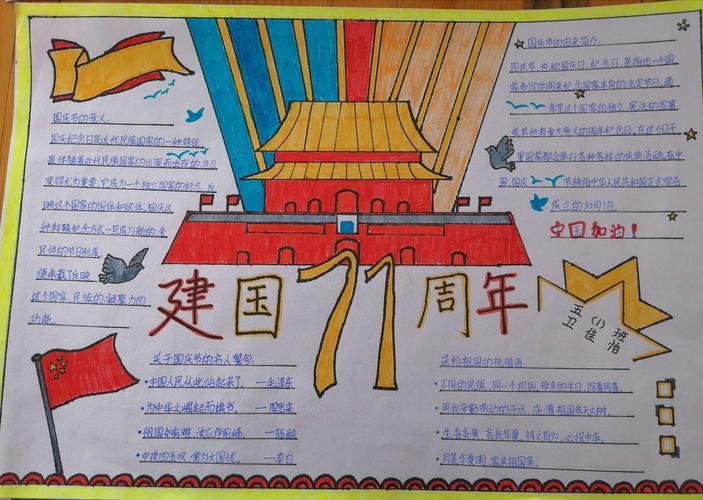 国庆节的意义
国庆纪念日是近代民族国家的一种特征,
是伴随着近代民族国家的出现而出现的,并且
变得尤为重要,它成为一个独立国家的标志,反
映这个国家的国体和政体。国庆这
种特殊纪念方式一旦成为新的、全
民性的节日形成,
便承载了反映
这个国家、民族的凝聚力的
功能。
国庆节的由来简介:
国庆节也称国庆日、纪念日,是指由一个国
家制定的用来纪念国家本身的法定节日,通
常是这个国家的独立、宪法的签署
或其他有重大意义的周年纪念日,在这个日子
里国家都会举行各种各样的庆典活动,在中
国,国庆节特指中华人民共和国正式宣告
成立的10月1日。
中国加油!
建国71周年
五(1)班
卫佳怡
关于国庆节的名人警句:
·中国人民从此站起来了。—毛泽东
·为中华之崛起而读书。—周恩来
·祖国如有难,汝应作前锋。—陈毅
·中夜四五叹,常为大国忧。—李白
送给祖国的祝福语:
·不同的民族,同一个祖国,母亲的生日,同喜同喜。
·用我辛勤劳动的汗水,浇灌祖国参天大树。
·生吾炎黄,育我华夏,待之有为,必报中华。
·月是华夏明,家是祖国亲。